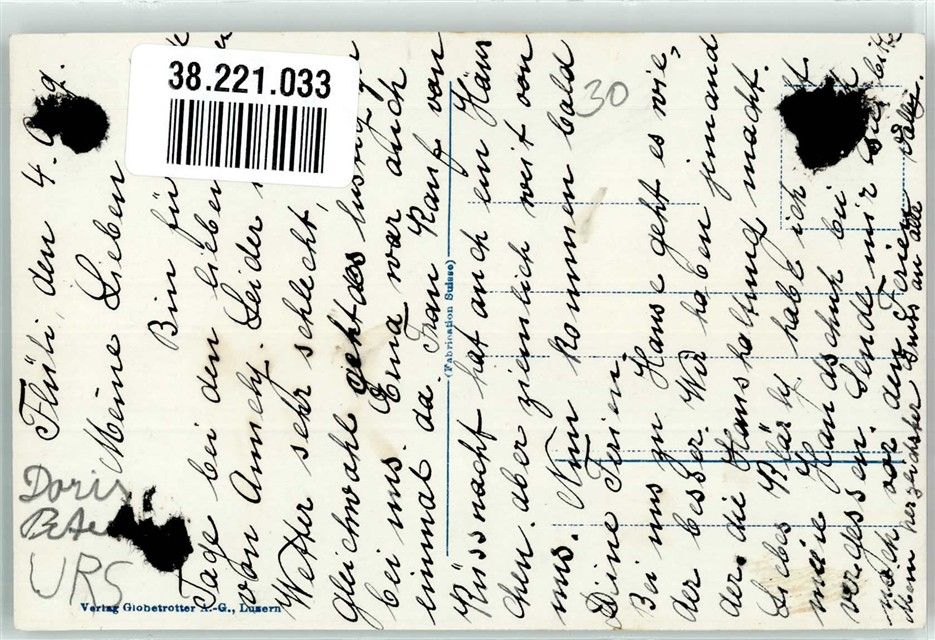 Flüli, den 4. 
Meine Lieben
Bin für
Tage bei den lieben
von Annely. Leider
Wetter sehr schlecht,
gleichwohl geht das lustig
bei uns. Erna war auch
einmal da. Frau Kauf von
Küssnacht hat auch ein Häus
chen aber ziemlich weit von
uns. Nun kommen bald
Deine Ferien.
Bei uns zu Hause geht es wie-
der besser. Wir haben jemand
der die Haushaltung macht.
Liebes Klärly habe ich
meine Handschuh bei
vergessen. Sende mir sie bitte
noch vor den Ferien
herzlichster Gruss an alle
38.221.033
30
Doris
URS
(Fabrication Suisse)
Verlag Globetrotter A.-G., Luzern